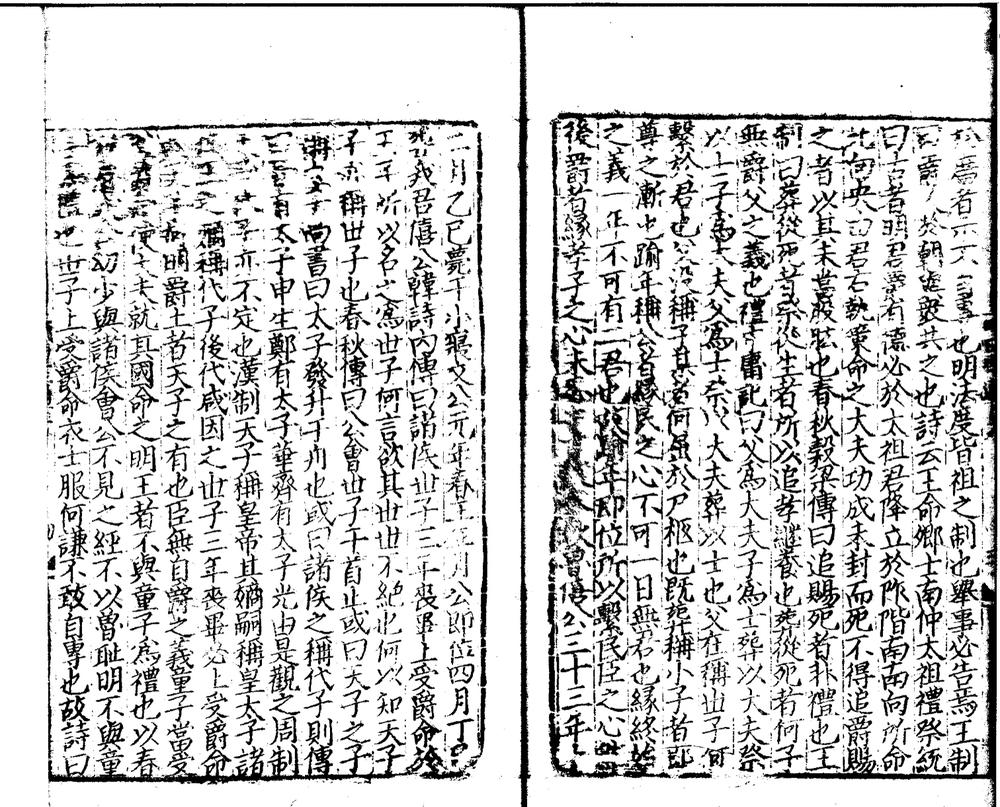 於廟者示不自專也明法度皆祖之制也舉事必告焉王制
曰爵人於朝與眾共之也詩云王命卿士南仲太祖禮祭統
曰古者明君爵有德必於太祖君降立於阼階南南向所命
北向史由君右執策命之大夫功成未封而死不得追爵賜
之者以其未當股肱也春秋穀梁傳曰追賜死者非禮也王
制曰葬從死者祭從生者所以追孝繼養也葬從死者何子
無爵父之義也禮中庸記曰父為大夫子為士葬以大夫祭
以士子為大夫父為士祭以大夫葬以士也父在稱世子何
繫於君也父沒稱子某者何屈於尸柩也既葬稱小子者即
尊之漸也踰年稱公者緣民之心不可一日無君也緣終始
之義一年不可有二君也故踰年即位所以繫民臣之心也
後爵者緣孝子之心未忍 三十三年
二月乙巳薨于小寢文公元年春王正月公即位四月丁巳
葬我君僖公韓詩內傳曰諸侯世子三年喪畢上受爵命於
天子所以名之為世子何言欲其世世不絕也何以知天子
子亦稱世子也春秋傳曰公會世子于首止或曰天子之子
稱太子尚書曰太子發升于舟也或曰諸侯之稱代子則傳
曰晉有太子申生鄭有太子華齊有太子光由是觀之周制
太子代子亦不定也漢制天子稱皇帝其嫡嗣稱皇太子諸
侯王之嫡稱代子後代咸因之世子三年喪畢必上受爵命
於天子何明爵土者天子之有也臣無自爵之義童子當受
使大夫就其國命之明王者不與童子為禮也以春
幼少與諸侯會公不見之經不以魯恥明不與童
也世子上受爵命衣士服何謙不敢自專也故詩曰